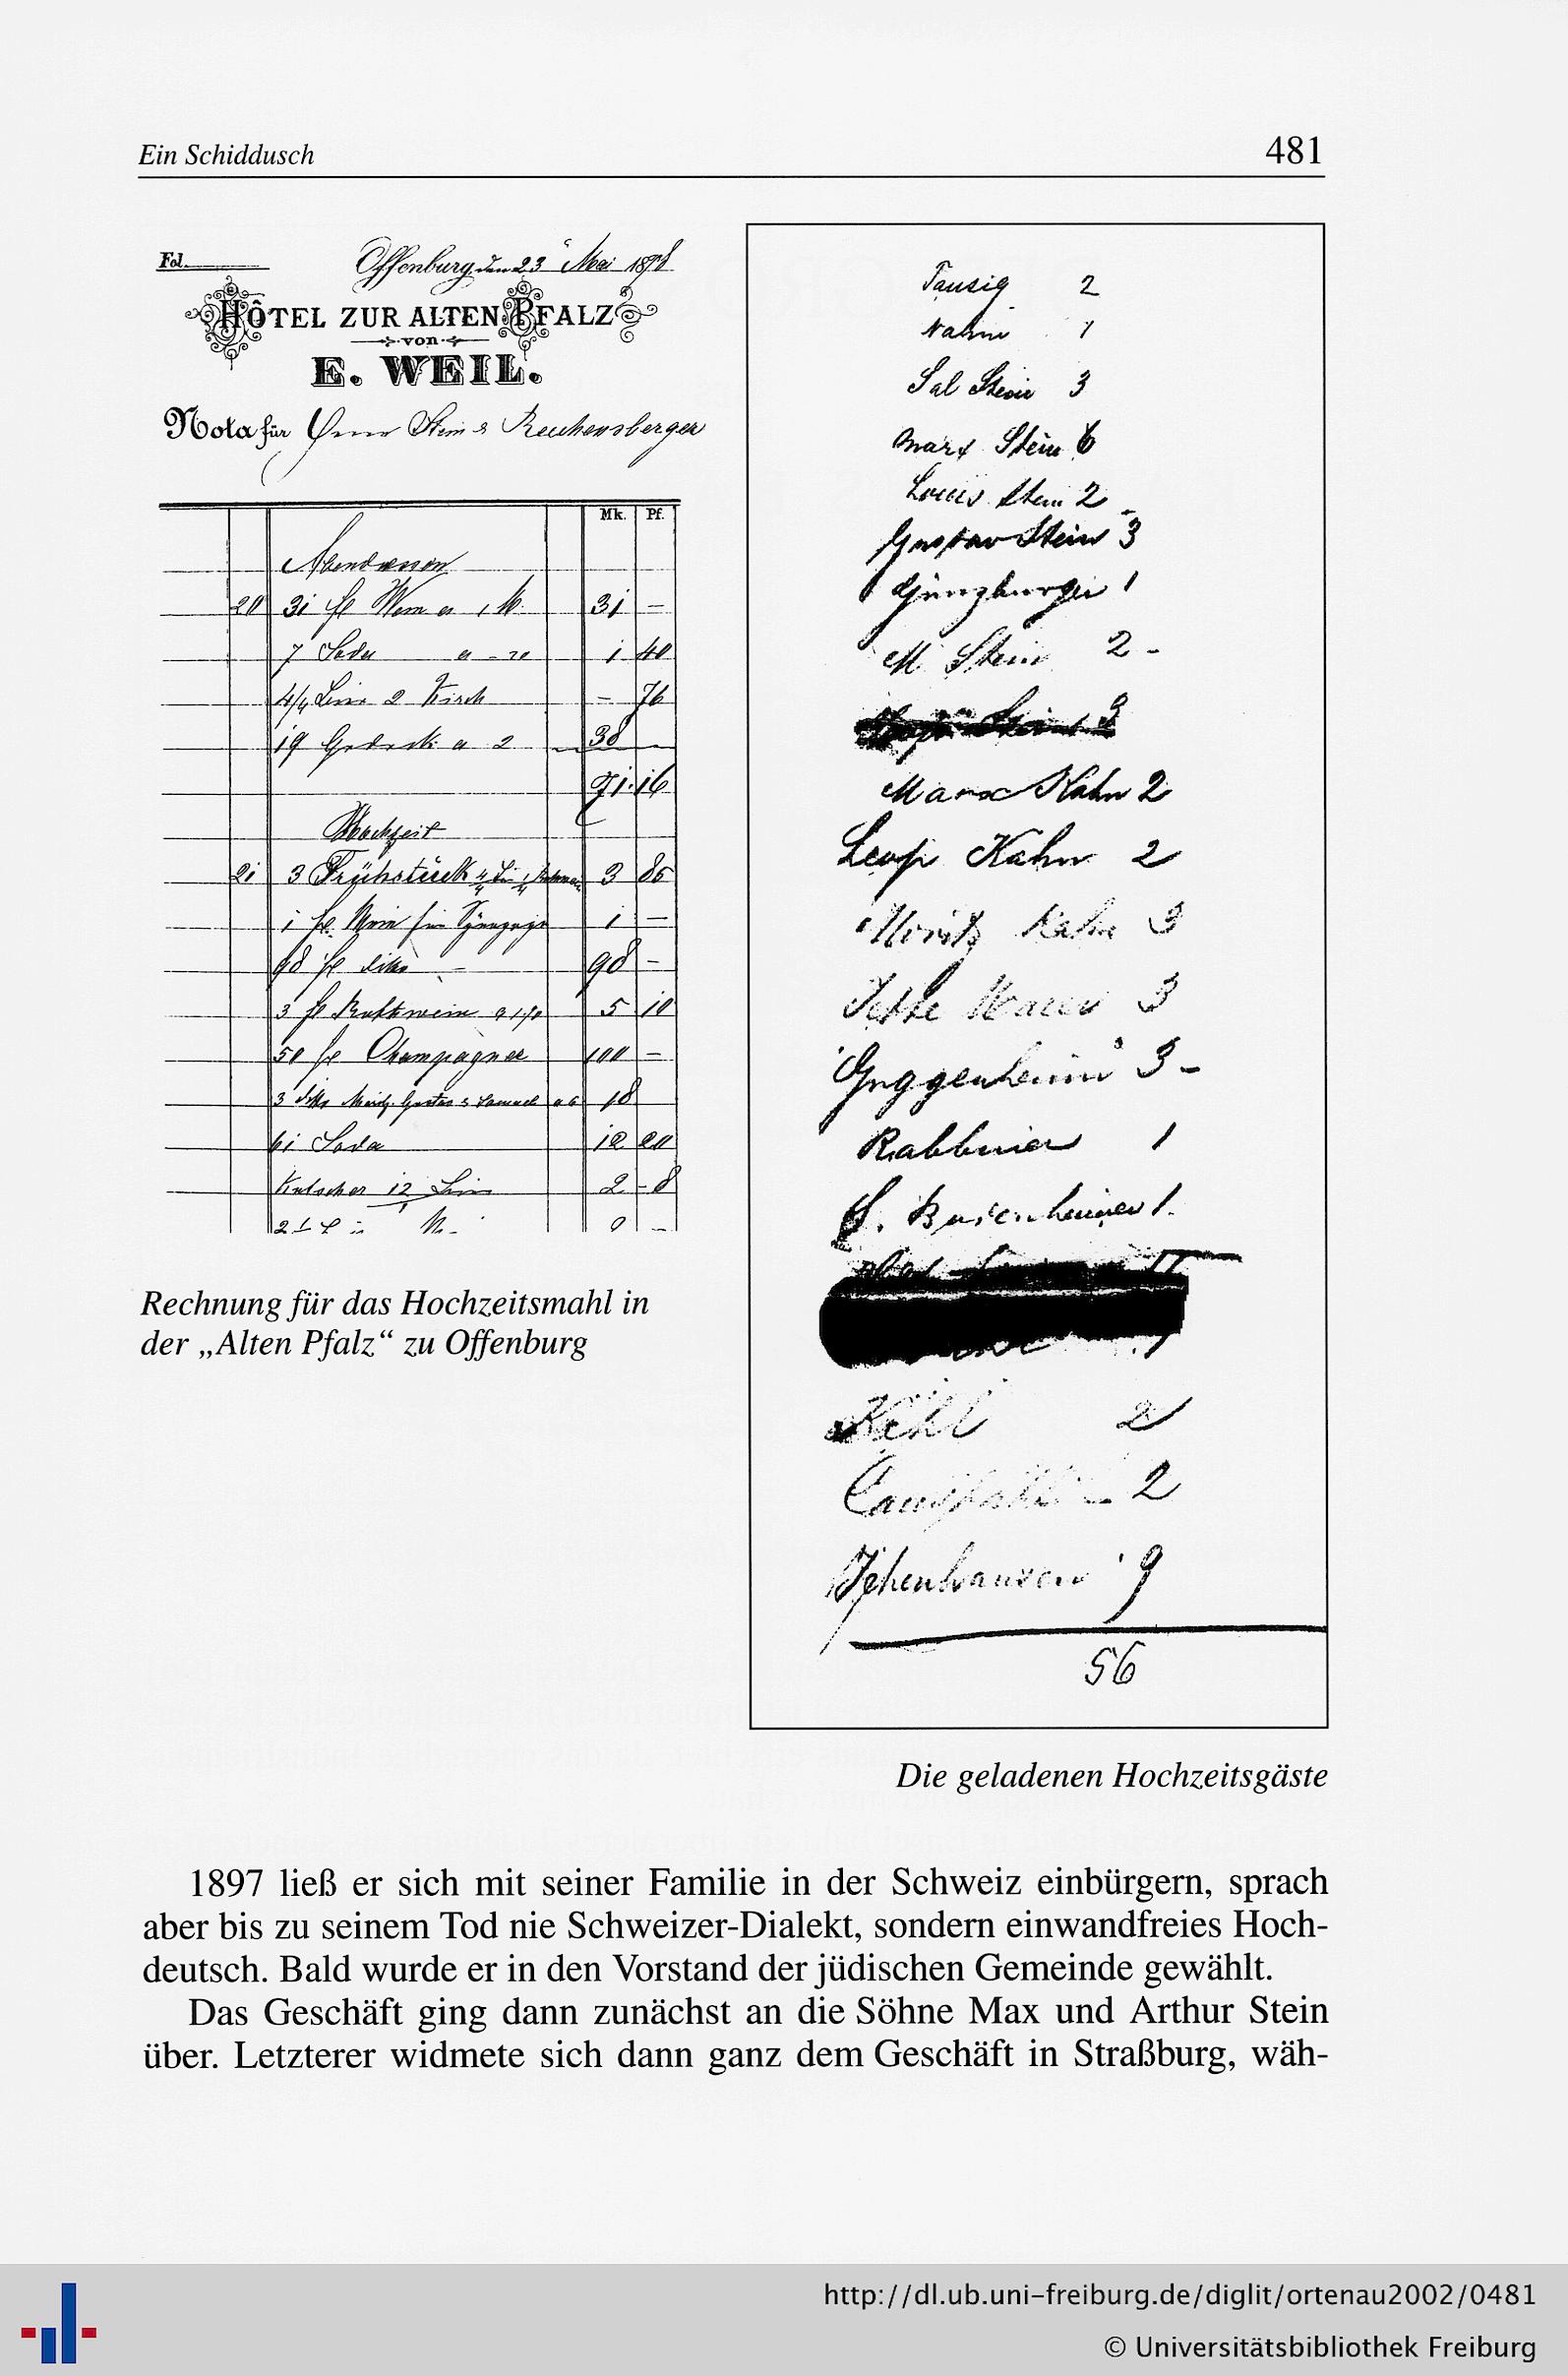 Ein Schiddusch
481
Fol.
Offenburg den 23 Mai 189
HÔTEL ZUR ALTEN PFALZ
von
E. WEIL.
Nota für Stein & Reichensberger
Mk. Pf.
Abendessen
20 31 fl Wein a 1 M. 31 —
7 Soda a - 20 1 40
4/4 2 Kirsch — 76
19 Gedeck a 2 38 —
71.16
Hochzeit
21 3 Frühstück 3 86
1 fl. Wein für Synagoge 1 —
98 fl dito — 98 —
3 fl Rothwein a 1,70 5 10
50 fl Champagner 100 —
3 dito Gustav & Samuel a 6 18
61 Soda 12 20
Kutscher 12 2 - 8
Rechnung für das Hochzeitsmahl in
der „Alten Pfalz“ zu Offenburg
Tausig 2
1
Sal Stein 3
Marx Stein 6
Louis Stein 2
Gustav Stein 3
Günzburger 1
M Stein 2 -
3
Marx Kahn 2
Leop Kahn 2
Moritz Kahn 3
3
Guggenheim 3 -
Rabbiner 1
1.
Kehl 2
2
Ichenhausen 9
56
Die geladenen Hochzeitsgäste
1897 ließ er sich mit seiner Familie in der Schweiz einbürgern, sprach
aber bis zu seinem Tod nie Schweizer-Dialekt, sondern einwandfreies Hoch-
deutsch. Bald wurde er in den Vorstand der jüdischen Gemeinde gewählt.
Das Geschäft ging dann zunächst an die Söhne Max und Arthur Stein
über. Letzterer widmete sich dann ganz dem Geschäft in Straßburg, wäh-
http://dl.ub.uni-freiburg.de/diglit/ortenau2002/0481
© Universitätsbibliothek Freiburg